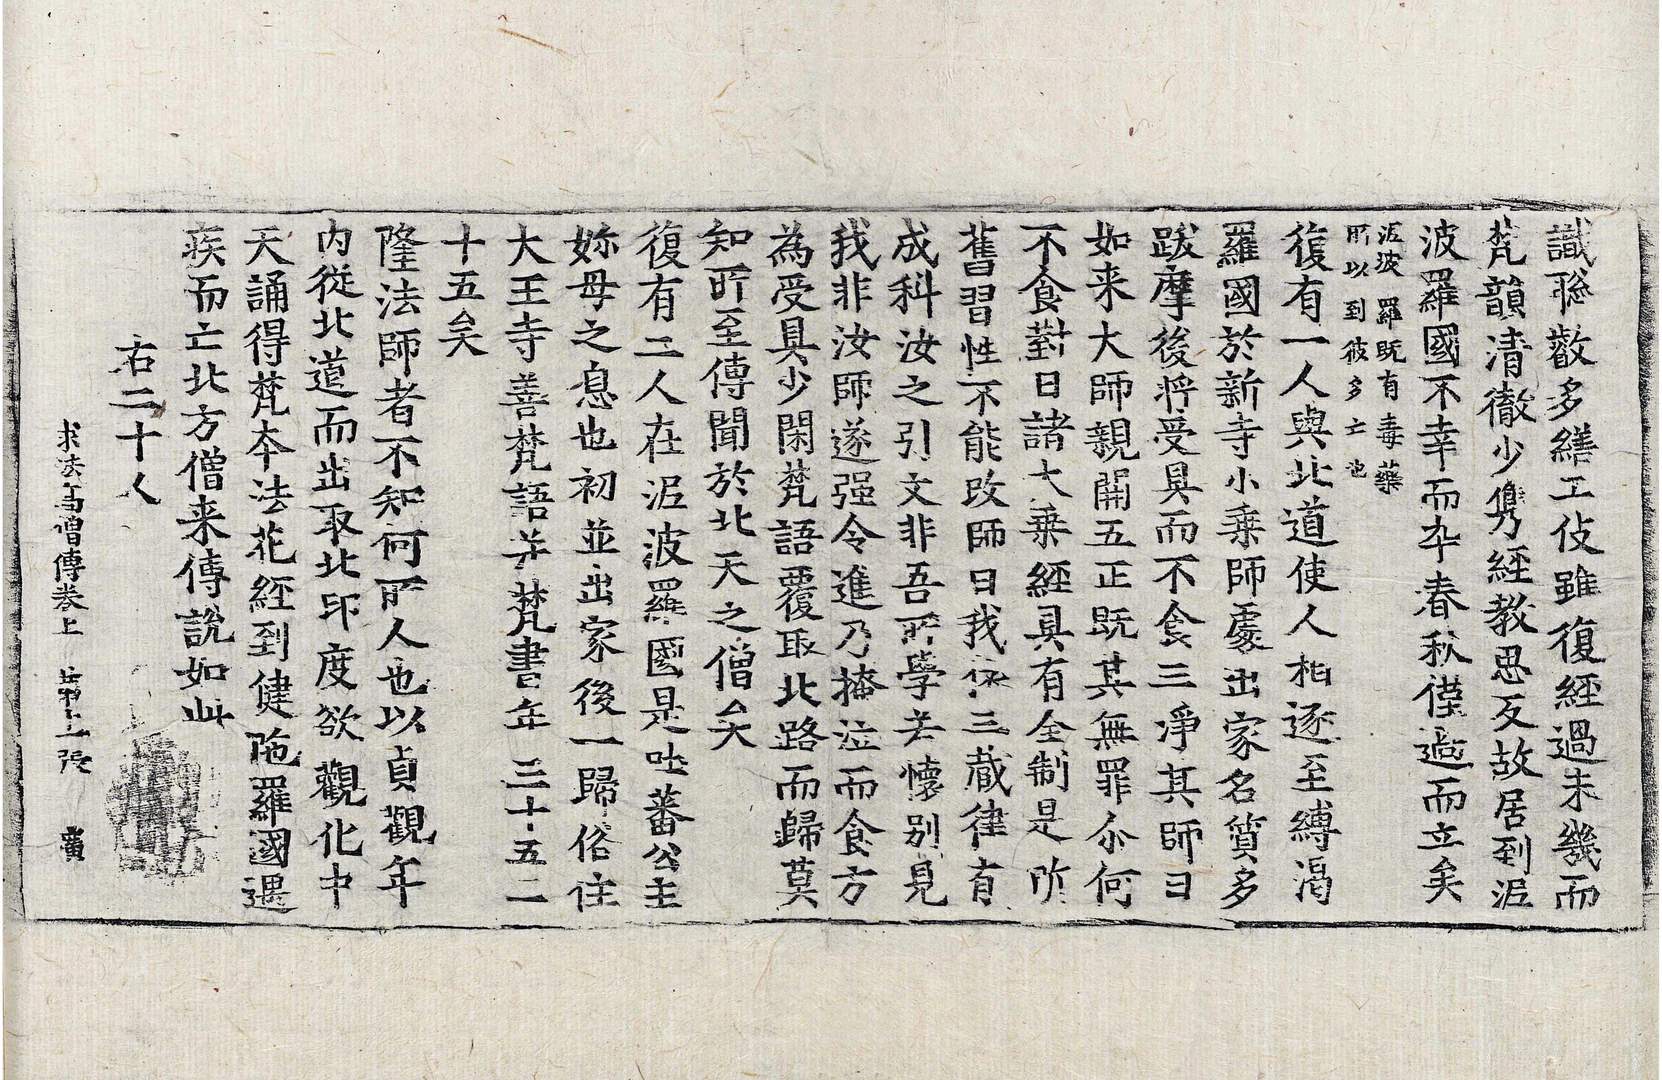 識聡叡多繕工伎雖復經過未幾而
梵韻清徹少携經教思返故居到泥
波羅國不幸而卒春秋僅過而立矣
泥波羅既有毒藥
所以到彼多亡也
復有一人與北道使人相逐至縛渴
羅國於新寺小乗師處出家名質多
跋摩後将受具而不食三淨其師曰
如来大師親開五正既其無罪尒何
不食對曰諸大乗經具有全制是所
舊習性不能改師曰我依三蔵律有
成科汝之引文非吾所學若懷别見
我非汝師遂强令進乃掩泣而食方
為受具少閑梵語覆取北路而歸莫
知所至傳聞於北天之僧矣
復有二人在泥波羅國是吐蕃公主
妳母之息也初並出家後一歸俗住
大王寺善梵語并梵書年三十五二
十五矣
隆法師者不知何所人也以貞觀年
内從北道而出取北印度欲觀化中
天誦得梵本法花經到健陁羅國遇
疾而亡北方僧来傳說如此
右二十人
求法高僧傳卷上 張 廣